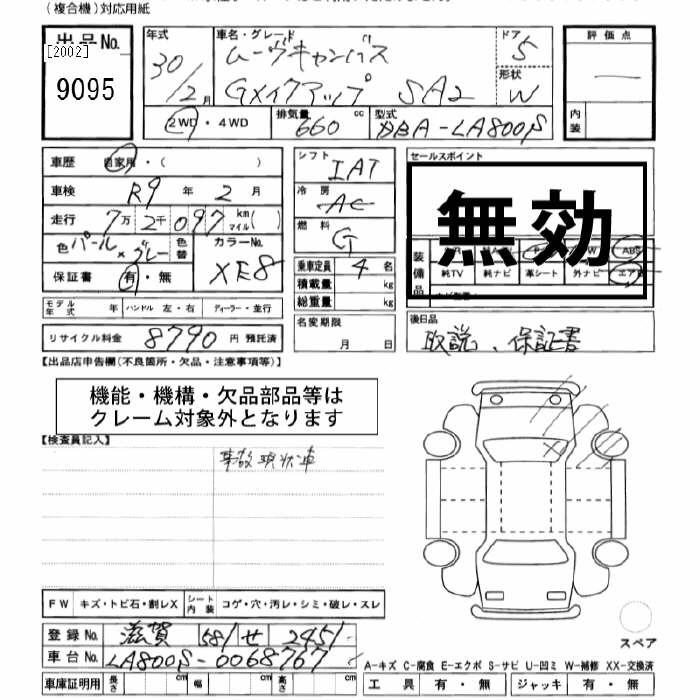 (複合機)対応用紙
出品No.
[2002]
9095
年式
30/12月
車名・グレード
ムーヴキャンバス
Gメイクアップ SA2
ドア
5
形状
W
評価点
—
内装
2WD・4WD
排気量 660 cc
型式 DBA-LA800S
車歴 自家用・( )
車検 R9 年 2 月
走行 7万2千097 km マイル( )
色 パール×グレー
色替
カラーNo. XE8
保証書 有・無
モデル年式 年 ハンドル 左・右 ディーラー・並行
リサイクル料金 8790 円 預託済
シフト IAT
冷房 AC
燃料 G
乗車定員 4 名
積載量 kg
総重量 kg
名変期限 月 日
セールスポイント
無効
装備品
ABS
純TV 純ナビ 革シート 外ナビ エアB
後日品
取説、保証書
【出品店申告欄(不良箇所・欠品・注意事項等)】
機能・機構・欠品部品等は
クレーム対象外となります
【検査員記入】
事故現状車
FW キズ・トビ石・割レX
シート内装 コゲ・穴・汚レ・シミ・破レ・スレ
登録No. 滋賀 581 せ 2451
車台No. LA800S-0068767
車庫証明用 長さ cm 幅 cm 高さ cm
スペア
A-キズ C-腐食 E-エクボ S-サビ U-凹ミ W-補修 XX-交換済
工具 有・無 ジャッキ 有・無